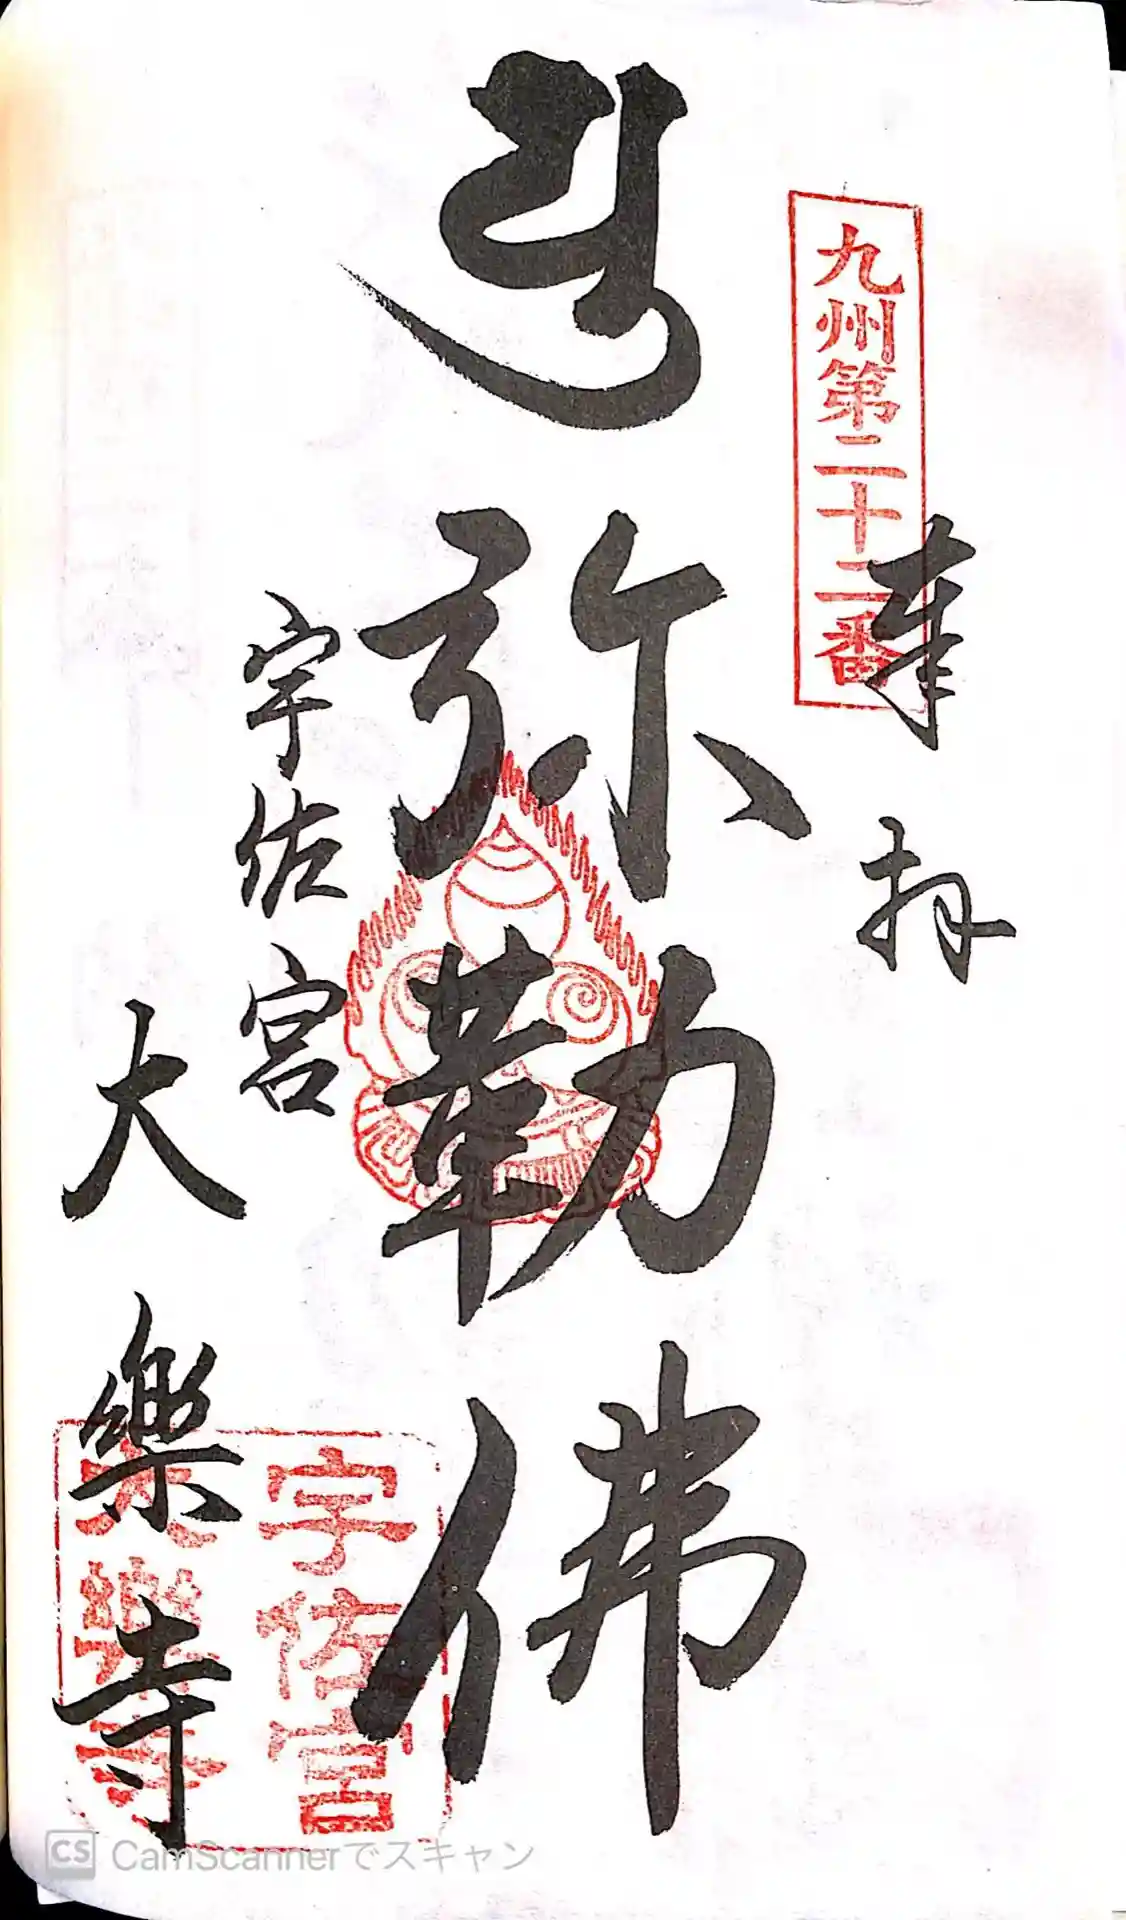 九州第二十二番
奉拝
弥勒佛
宇佐宮
大樂寺
宇佐宮
大樂寺
CS CamScannerでスキャン